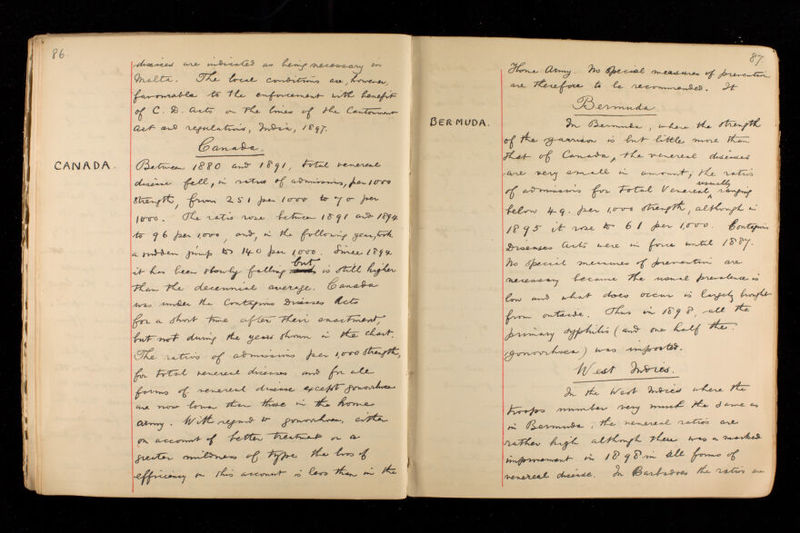 86.
diseases are indicated as being necessary in
Malta. The local conditions are, however,
favourable to the enforcement with benefit
of C. D. Acts on the lines of the Cantonment
Act and regulations, India, 1897.
Canada.
CANADA.
Between 1880 and 1891, total venereal
disease fell, in ratios of admissions, per 1000
strength, from 251 per 1000 to 70 per
1000. The ratio rose between 1891 and 1894
to 96 per 1000, and, in the following year, took
a sudden jump to 140 per 1000. Since 1894
it has been slowly falling but is still higher
than the decennial average. Canada
was under the Contagious Diseases Acts
for a short time after their enactment
but not during the years shown in the chart.
The ratios of admissions per 1,000 strength,
for total venereal diseases and for all
forms of venereal disease except gonorrhoea
are now lower than those in the home
army. With regard to gonorrhoea, either
on account of better treatment or a
greater mildness of type the loss of
efficiency on this account is less than in the
87.
Home Army. No special measures of prevention
are therefore to be recommended. It
Bermuda
BERMUDA.
In Bermuda, where the strength
of the garrison is but little more than
that of Canada, the venereal diseases
are very small in amount; the ratios
of admissions for total venereal, usually ranging
below 49. per 1,000 strength, although in
1895 it rose to 61 per 1,000. Contagious
Diseases Acts were in force until 1887.
No special measures of prevention are
necessary because the usual prevalence is
low and what does occur is largely brought
from outside. Thus in 1898, all the
primary syphilis (and one half the
gonorrhoea) was imported.
West Indies.
In the West Indies where the
troops number very much the same as
in Bermuda, the venereal ratios are
rather high although there was a marked
improvement in 1898 in all forms of
venereal disease. In Barbadoes the ratios are